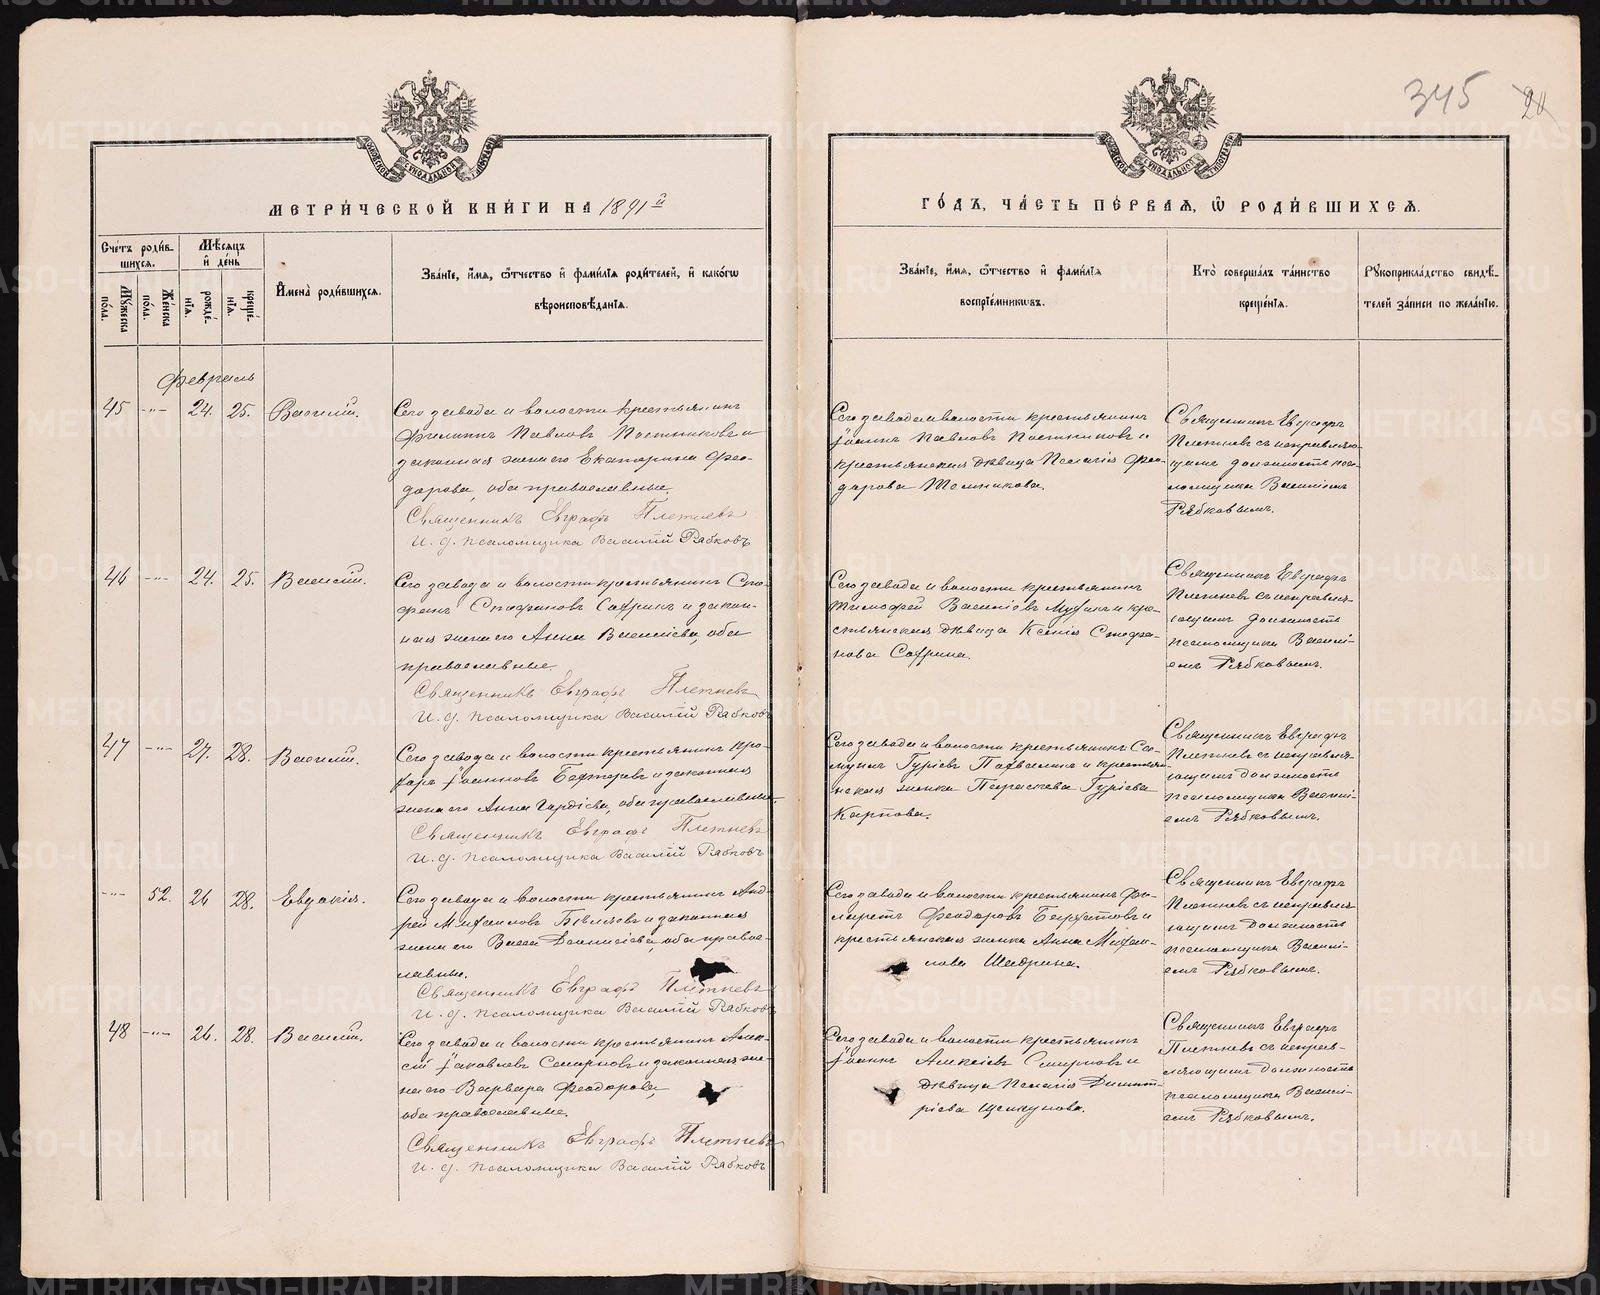 345
20
МЕТРИ́ЧЕСКОЙ КНИ́ГИ НА 1891й
ГО́ДЪ, ЧА́СТЬ ПЕ́РВАЯ, Ѡ РОДИ́ВШИХСЯ.
Сче́тъ роди́в-
шихся.
Мꙋжеска по́ла.
Же́нска по́ла.
Мѣ́сяцъ
и̂ де́нь
рожде́-
нїя.
креще́-
нїя.
И҆мена̀ роди́вшихся.
Зва́нїе, и҆́мя, ѻ҆́тчество и҆ фами́лїя роди́телей, и҆ како́гѡ
вѣроисповѣ́данїя.
Зва́нїе, и҆́мя, ѻ҆́тчество и҆ фами́лїя
воспрїе́мникѡвъ.
Кто̀ соверша́лъ та́инство
креще́нїя.
Рꙋкоприкла́дство свидѣ́-
телей за́писи по жела́нїю.
Февраль
45 -„- 24. 25. Василій.
Сего завода и волости крестьянинъ
Филиппъ Павловъ Постниковъ и
законная жена его Екатерина Фео-
дорова, оба православные.
Священникъ Евграфъ Плетневъ
И. д. псаломщика Василій Рябковъ
Сего завода и волости крестьянинъ
Іоаннъ Павловъ Постниковъ и
крестьянская дѣвица Пелагія Фео-
дорова
Священникъ Евграфъ
Плетневъ съ исправляю-
щимъ должность пса-
ломщика Василіемъ
Рябковымъ.
46 -„- 24. 25. Василій.
Сего завода и волости крестьянинъ Сте-
фанъ Стефановъ Сафринъ и закон-
ная жена его Анна Василіева, оба
православные.
Священникъ Евграфъ Плетневъ
И. д. псаломщика Василій Рябковъ
Сего завода и волости крестьянинъ
Тимофей Василіевъ и кре-
стьянская дѣвица Ксенія Стефа-
нова Сафрина.
Священникъ Евграфъ
Плетневъ съ исправля-
ющимъ должность
псаломщика Василі-
емъ Рябковымъ.
47 -„- 27. 28. Василій.
Сего завода и волости крестьянинъ
Іоанновъ и законная
жена его Анна оба православные.
Священникъ Евграфъ Плетневъ
И. д. псаломщика Василій Рябковъ
Сего завода и волости крестьянинъ
Гуріевъ и крестья-
нская женка Параскева Гуріева
Карпова.
Священникъ Евграфъ
Плетневъ съ исправля-
ющимъ должность
псаломщика Василі-
емъ Рябковымъ.
-„- 52. 26 28. Евдокія.
Сего завода и волости крестьянинъ Анд-
рей Михаиловъ и законная
жена его Васса Діонисіева, оба право-
славные.
Священникъ Евграфъ Плетневъ
И. д. псаломщика Василій Рябковъ
Сего завода и волости крестьянинъ Фи-
ларетъ Феодоровъ и
крестьянская женка Анна Михаи-
лова Шадрина.
Священникъ Евграфъ
Плетневъ съ исправля-
ющимъ должность
псаломщика Василі-
емъ Рябковымъ.
48 -„- 26. 28. Василій.
Сего завода и волости крестьянинъ Алек-
сій Іаковлевъ Смирновъ и законная же-
на его Варвара Феодорова,
оба православные.
Священникъ Евграфъ Плетневъ
И. д. псаломщика Василій Рябковъ
Сего завода и волости крестьянинъ
Іоаннъ Алексіевъ Смирновъ и
дѣвица Пелагія Димит-
ріева Щелкунова.
Священникъ Евграфъ
Плетневъ съ исправ-
ляющимъ должность
псаломщика Василі-
емъ Рябковымъ.
METRIKI.GASO-URAL.RU